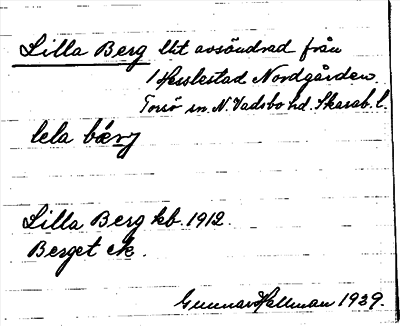 Lilla Berg lht avsöndrad från
1 Hesslestad Nordgården.
Torsö sn. N. Vadsbo hd. Skarab. l.
lela bærj
Lilla Berg kb. 1912.
Berget ek.
Gunnar Hallman 1939.